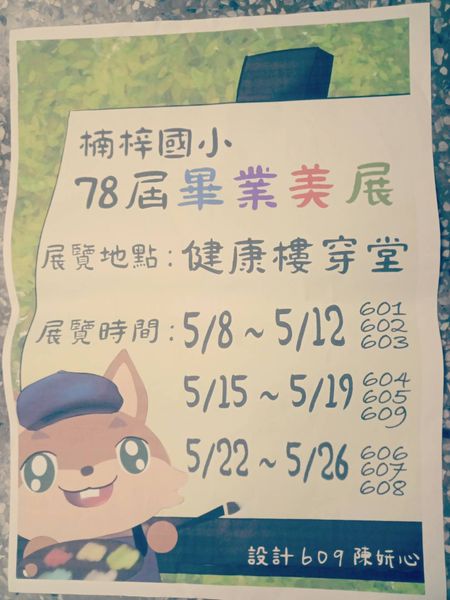 楠梓國小
78屆畢業美展
展覽地點：健康樓穿堂
展覽時間：5/8～5/12 601 602 603
5/15～5/19 604 605 609
5/22～5/26 606 607 608
設計609陳妍心